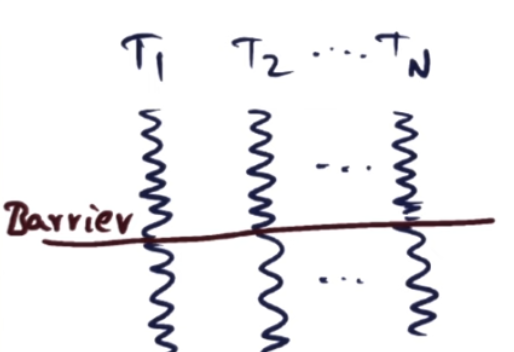 T1 T2 .... TN
...
Barrier
...